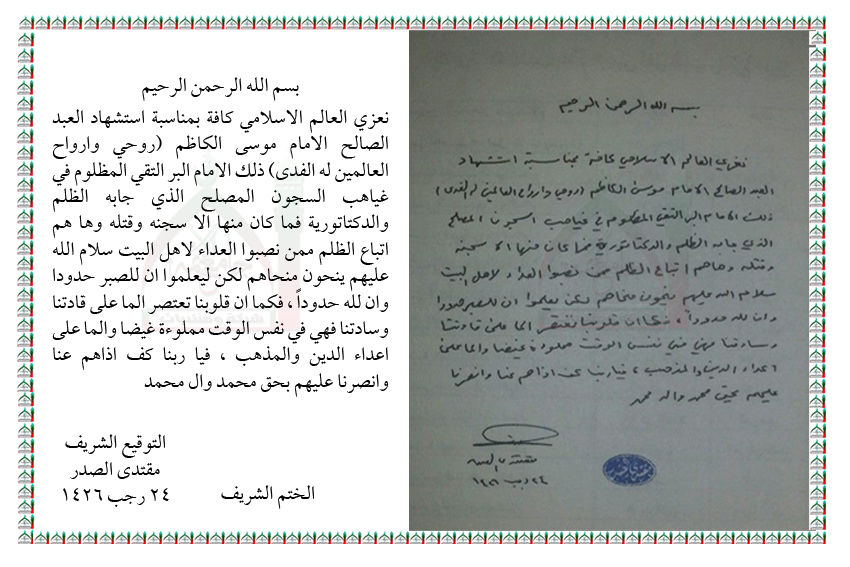 بسم الله الرحمن الرحيم
نعزي العالم الاسلامي كافة بمناسبة استشهاد العبد
الصالح الامام موسى الكاظم (روحي وارواح
العالمين له الفدى) ذلك الامام البر التقي المظلوم في
غياهب السجون المصلح الذي جابه الظلم
والدكتاتورية فما كان منها الا سجنه وقتله وها هم
اتباع الظلم ممن نصبوا العداء لاهل البيت سلام الله
عليهم ينحون منحاهم لكن ليعلموا ان للصبر حدودا
وان لله حدوداً ، فكما ان قلوبنا تعتصر الما على قادتنا
وسادتنا فهي في نفس الوقت مملوءة غيضا والما على
اعداء الدين والمذهب ، فيا ربنا كف اذاهم عنا
وانصرنا عليهم بحق محمد وال محمد
التوقيع الشريف
مقتدى الصدر
الختم الشريف ٢٤ رجب ١٤٢٦
بسم الله الرحمن الرحيم
نعزي العالم الاسلامي كافة بمناسبة استشهاد
العبد الصالح الامام موسى الكاظم (روحي وارواح العالمين له الفدى)
ذلك الامام البر التقي المظلوم في غياهب السجون المصلح
الذي جابه الظلم والدكتاتورية فما كان منها الا سجنه
وقتله وهاهم اتباع الظلم ممن نصبوا العداء لاهل البيت
سلام الله عليهم ينحون منحاهم لكن ليعلموا ان للصبر حدودا
وان لله حدوداً ، فكما ان قلوبنا تعتصر الما على قادتنا
وسادتنا فهي في نفس الوقت مملوءة غيضا والما على
اعداء الدين والمذهب ، فيا ربنا كف اذاهم عنا وانصرنا
عليهم بحق محمد وال محمد
مقتدى الصدر
٢٤ رجب ١٤٢٦